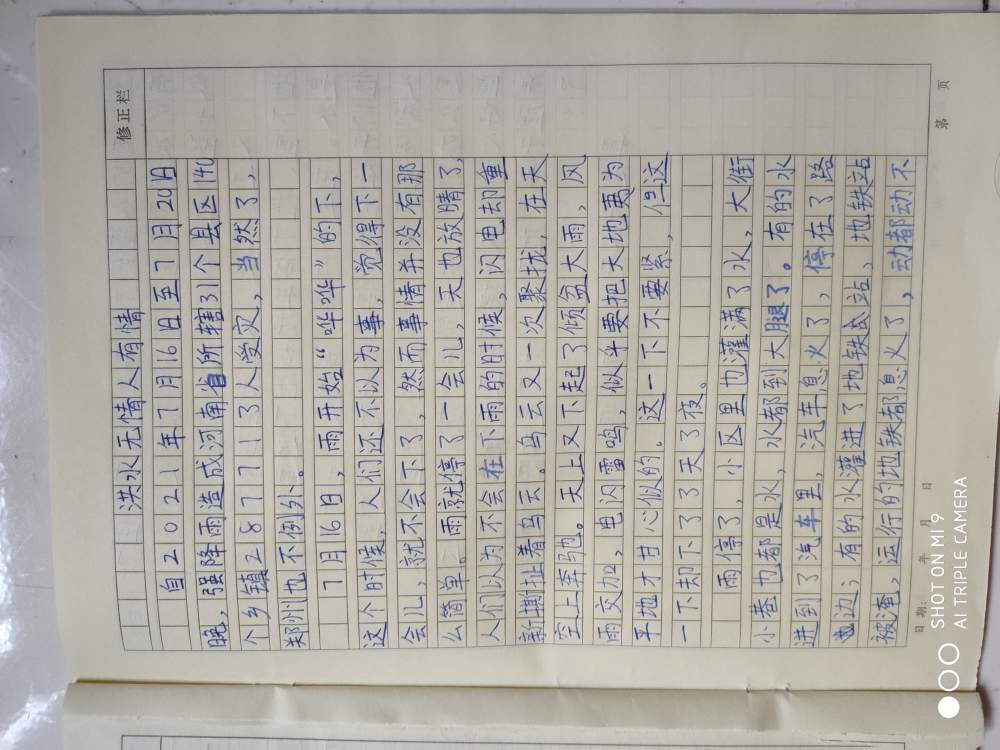 修正栏
洪水无情人有情
自2021年7月16日至7月20日
晚，强降雨造成河南省所辖31个县区140
个乡镇287713人受灾，当然了，
郑州也不例外。
7月16日，雨开始“哗哗”的下，
这个时候，人们还不以为事，觉得下一
会儿，就不会下了，然而事情并没有那
么简单。雨就停了一会儿，天也放晴了，
人们以为不会在下雨的时候，闪电却重
新撕扯着乌云。乌云又一次聚拢，在天
空上奔驰。天上又下起了倾盆大雨，风
雨交加，电闪雷鸣，似乎要把大地夷为
平地才甘心似的。这一下不要紧，但这
一下却下了了天了夜。
雨停了，小区里也灌满了水，大街
小巷也都是水，水都到大腿了。有的水
进到了汽车里，汽车息火了，停在了路
边；有的水灌进了地铁站、地铁站
被淹，运行的地铁都息火了，动都动不
日期： 年 月 日
第 页
SHOT ON MI 9
AI TRIPLE CAMERA